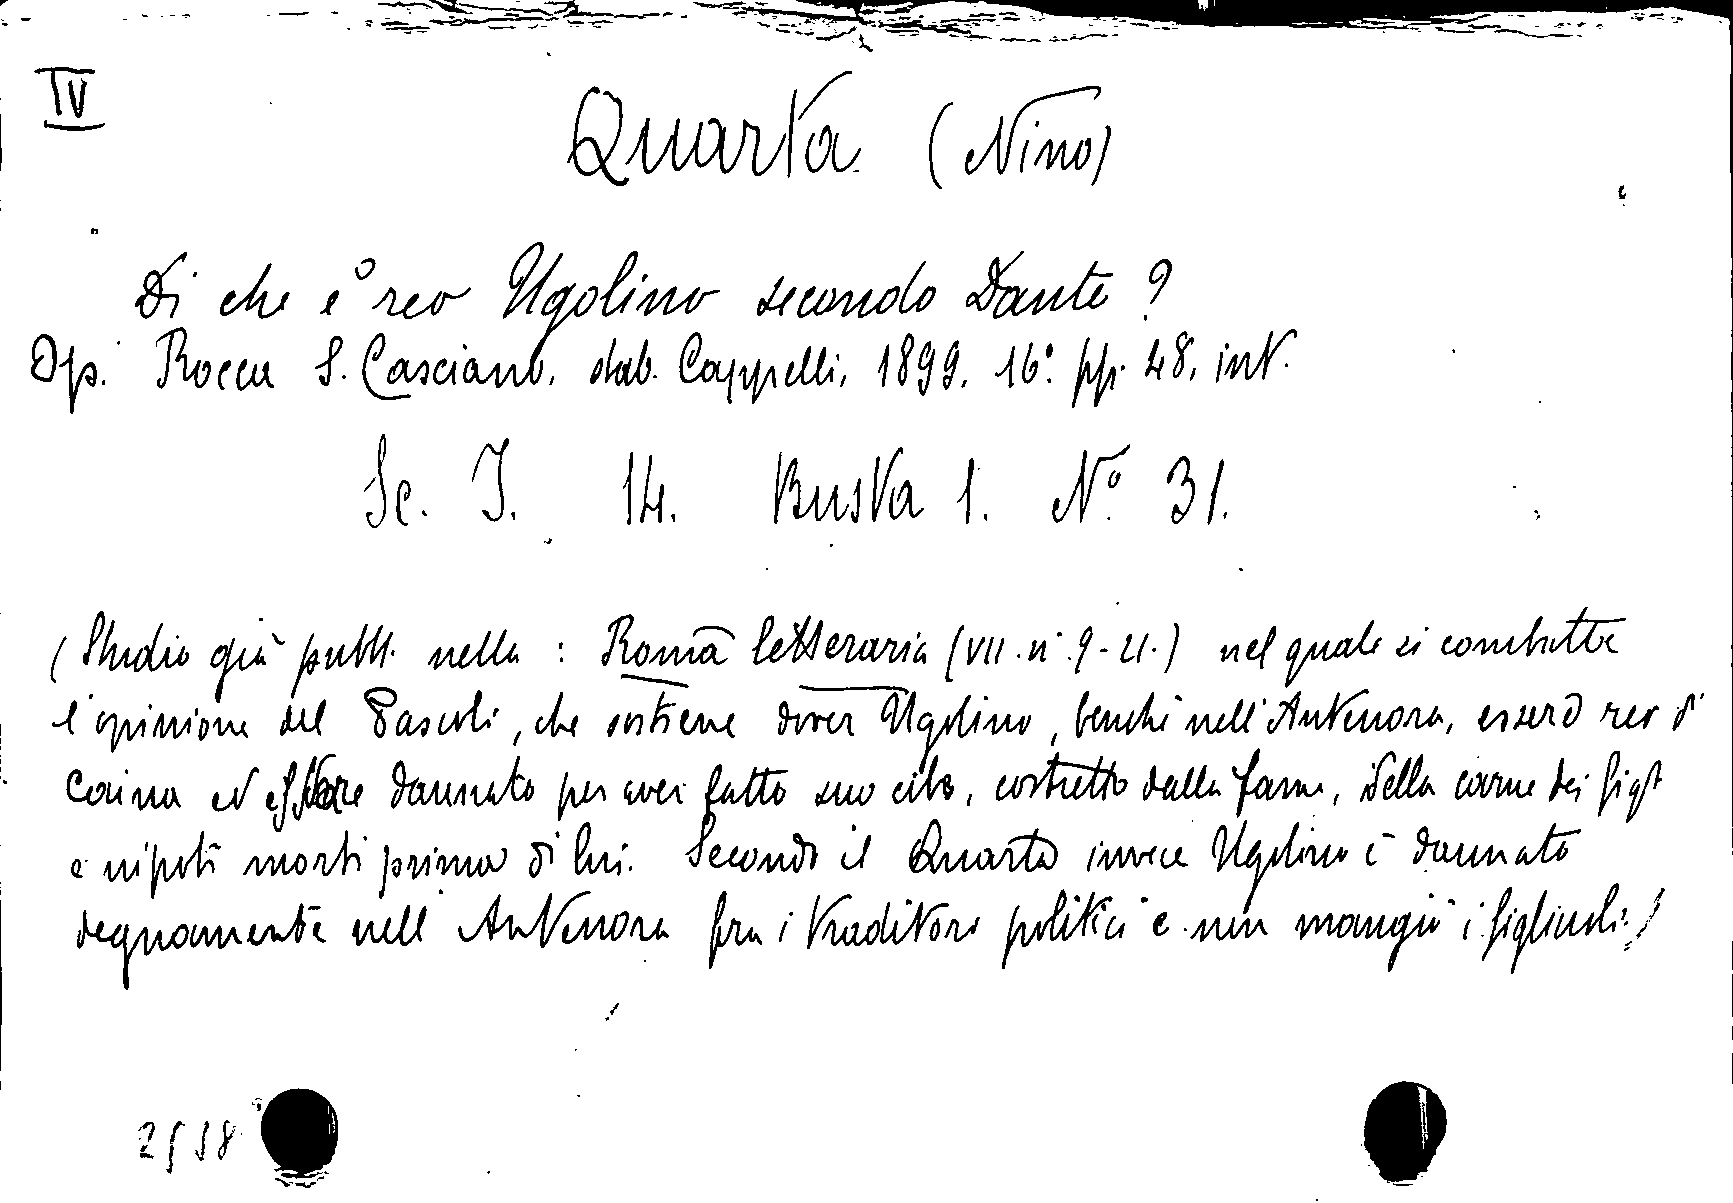 IV
Quarta (Nino)
Di che è reo Ugolino secondo Dante?
Op. Rocca S. Casciano, stab. Cappelli, 1899. 16°. pp. 48, int.
Sc. I. 14. Busta 1. N° 31.
(Studio già pubbl. nella: Roma letteraria (VII. n. 9-21.) nel quale si combatte
l'opinione del Pascoli, che sostiene dover Ugolino, benchè nell'Antenora, essere reo di
Caina ed essere dannato per aver fatto suo cibo, costretto dalla fame, della carne dei figli
e nipoti morti prima di lui. Secondo il Quarta invece Ugolino è dannato
degnamente nell'Antenora fra i traditori politici e non mangiò i figliuoli.)